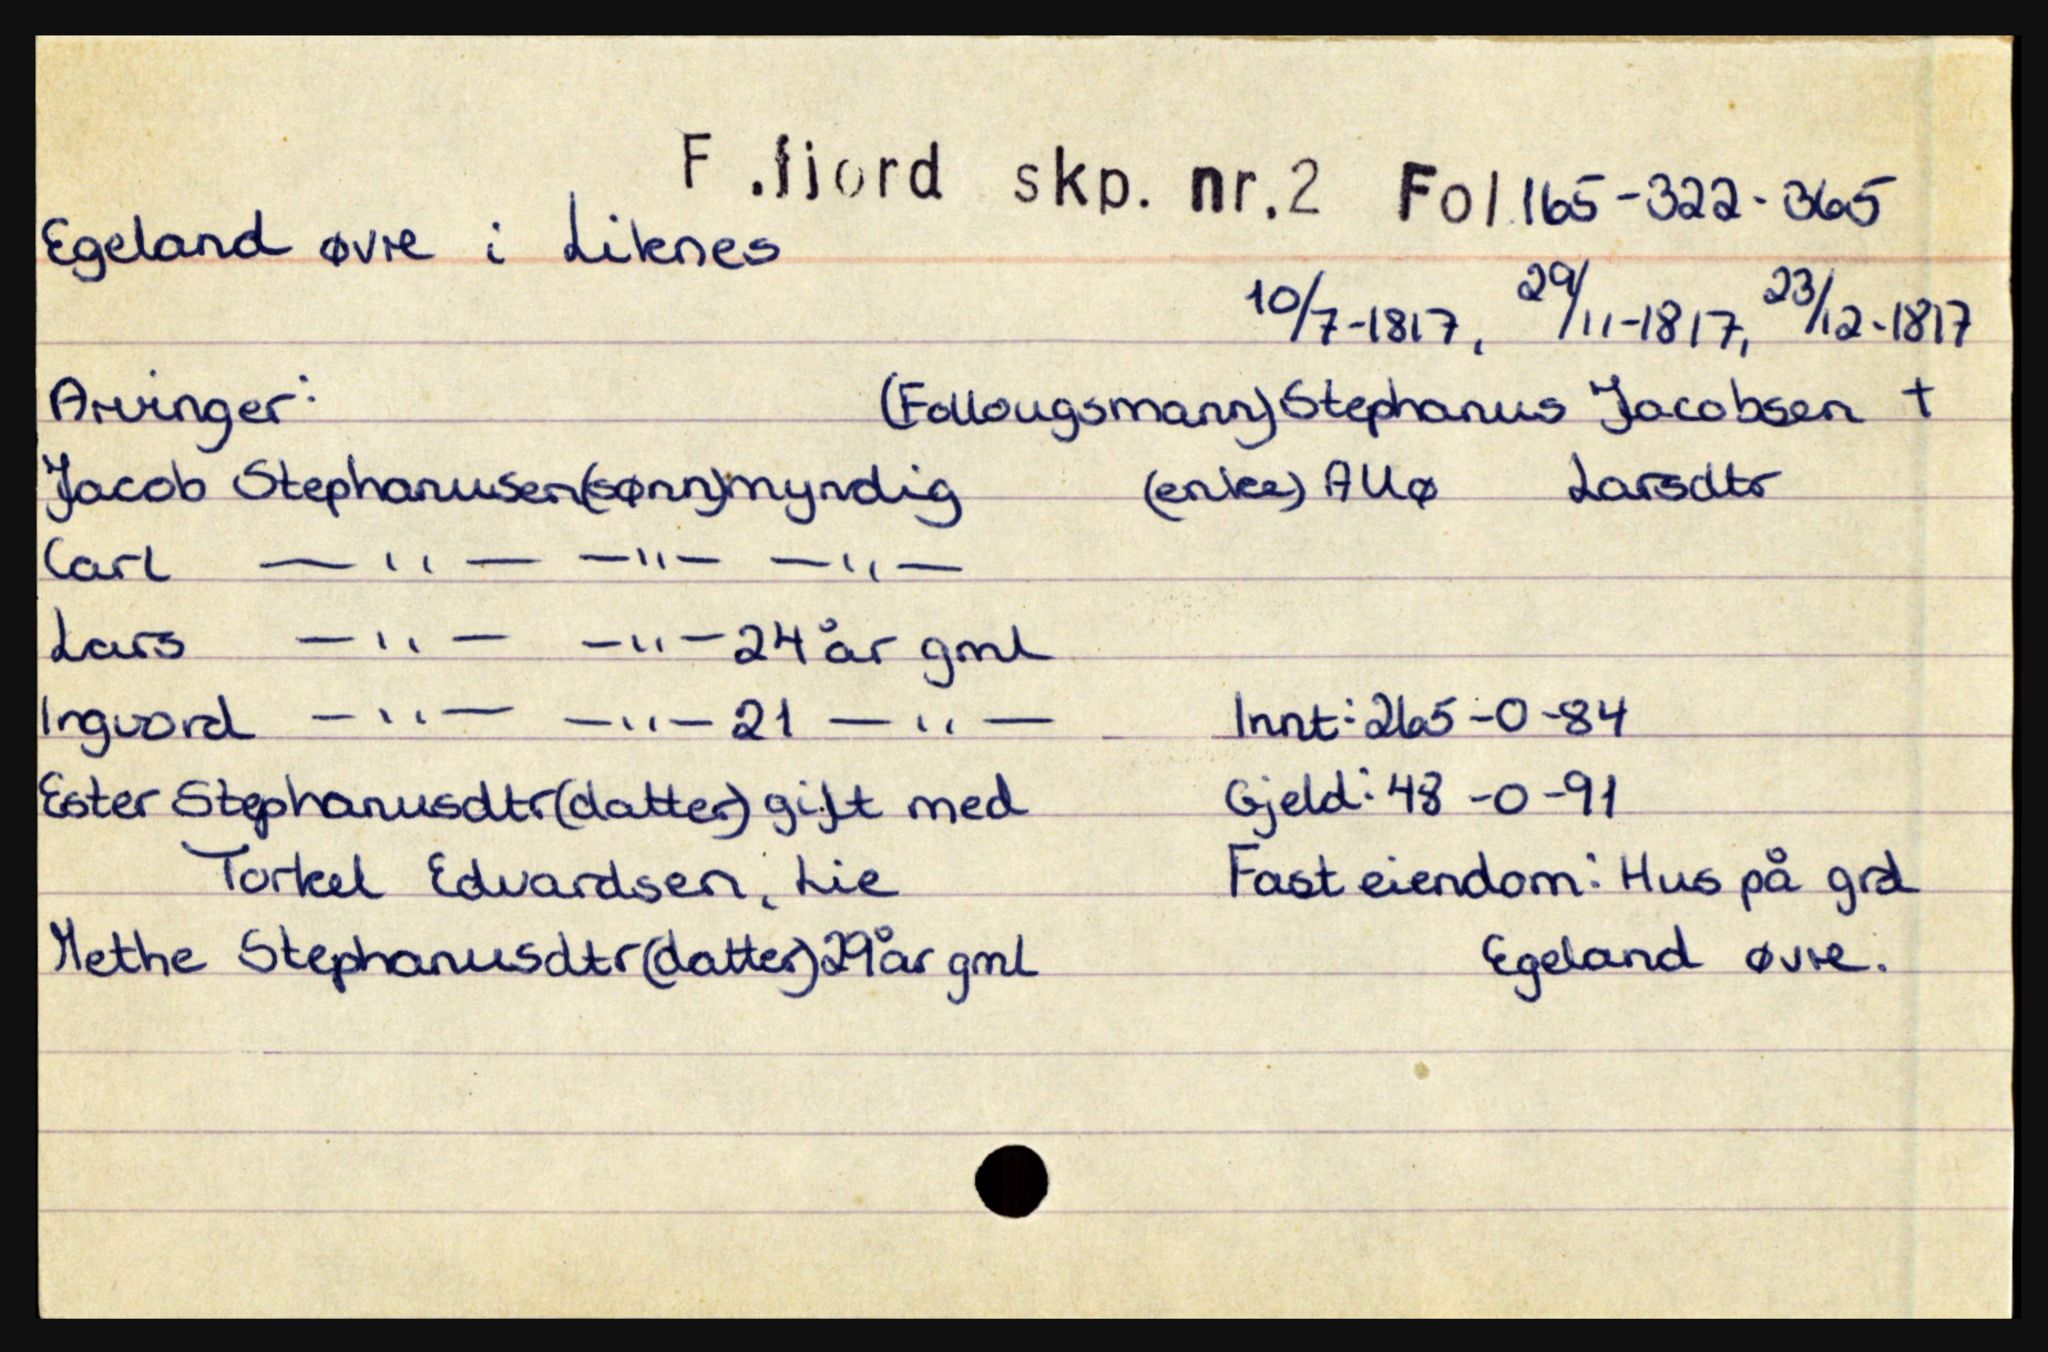 F.fjord skp. nr.2 Fol.165-322-365
Egeland øvre i Liknes
10/7-1817, 29/11-1817, 23/12-1817
Arvinger: (Follougsmann) Stephanus Jacobsen †
Jacob Stephanusen (sønn) myndig (enke) Allø Larsdtr
Carl —"— —"— —"—
Lars —"— —"— 24 år gml
Ingvord —"— —"— 21 —"— Innt: 265-0-84
Ester Stephanusdtr (datter) gift med Gjeld: 48-0-91
Torkel Edvardsen, Lie Fast eiendom: Hus på grd
Methe Stephanusdtr (datter) 29 år gml Egeland øvre.